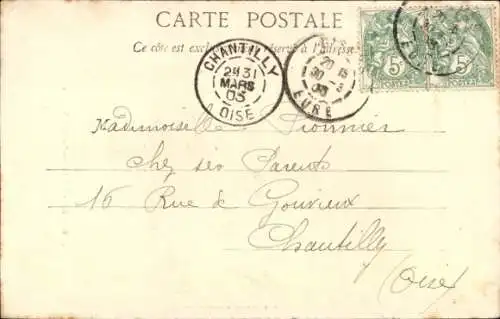 CARTE POSTALE
Ce côté est exclusivement réservé à l'adresse
CHANTILLY
2E 31
MARS
03
OISE
20
30
03
EURE
5c
POSTES
5c
EURE
Mademoiselle Pionnier
chez ses Parents
16 Rue de Gouvieux
Chantilly
(Oise)